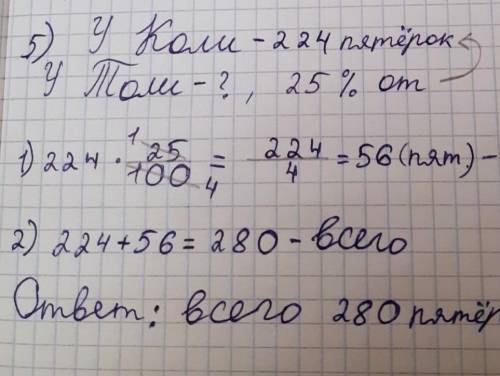 5) У Коли - 224 пятёрок
У Толи - ?, 25% от
1) 224 · 25/100 = 224/4 = 56 (пят) -
1 4
2) 224 + 56 = 280 - всего
Ответ: всего 280 пятёр